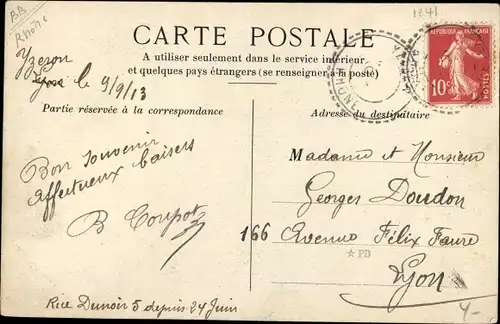 BB
Rhône
1241
CARTE POSTALE
A utiliser seulement dans le service intérieur
et quelques pays étrangers (se renseigner à la poste)
Yzeron
le 9/9/13
RHÔNE
10c
POSTES
Partie réservée à la correspondance
Adresse du destinataire
Bon souvenir
affectueux baisers
B Coupot
Madame et Monsieur
Georges Doudon
166 Avenue Félix Faure
PD
Lyon
Rue Dunoir 5 depuis 24 Juin
4-